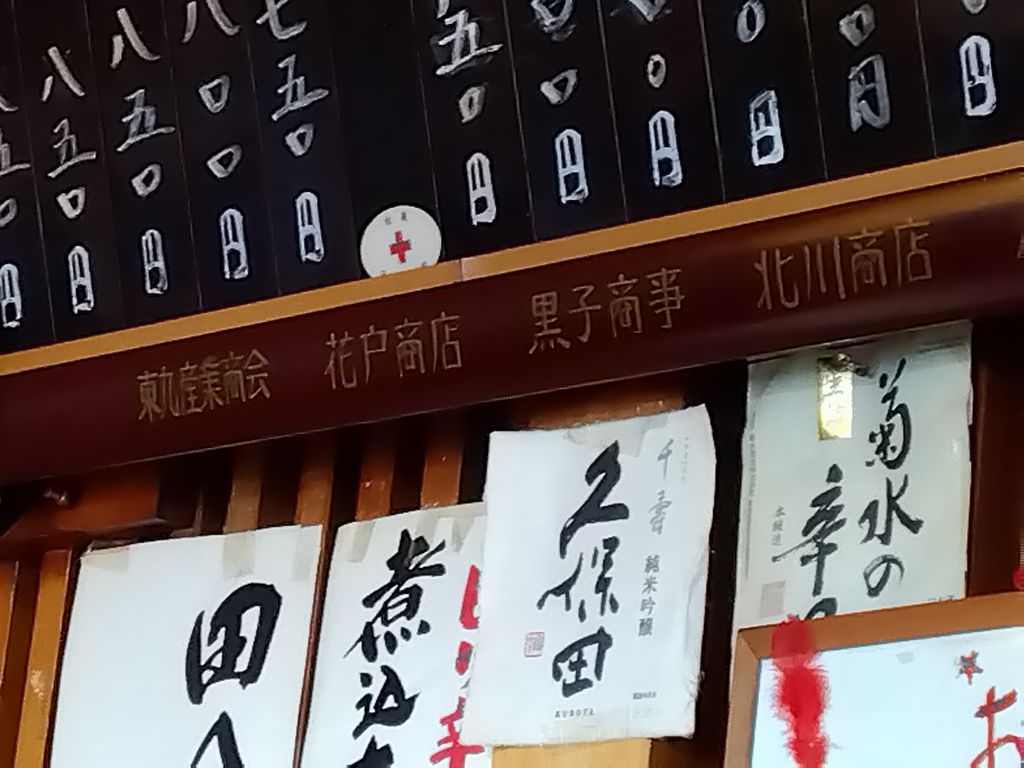 八五〇円
八五〇円
八〇〇円
七五〇円
五〇円
〇〇円
〇〇円
〇円
〇円
円
東九産業商会
花戸商店
黒子商事
北川商店
田
煮込
千壽
久保田
純米吟醸
KUBOTA
菊水の
辛口
本醸造
お